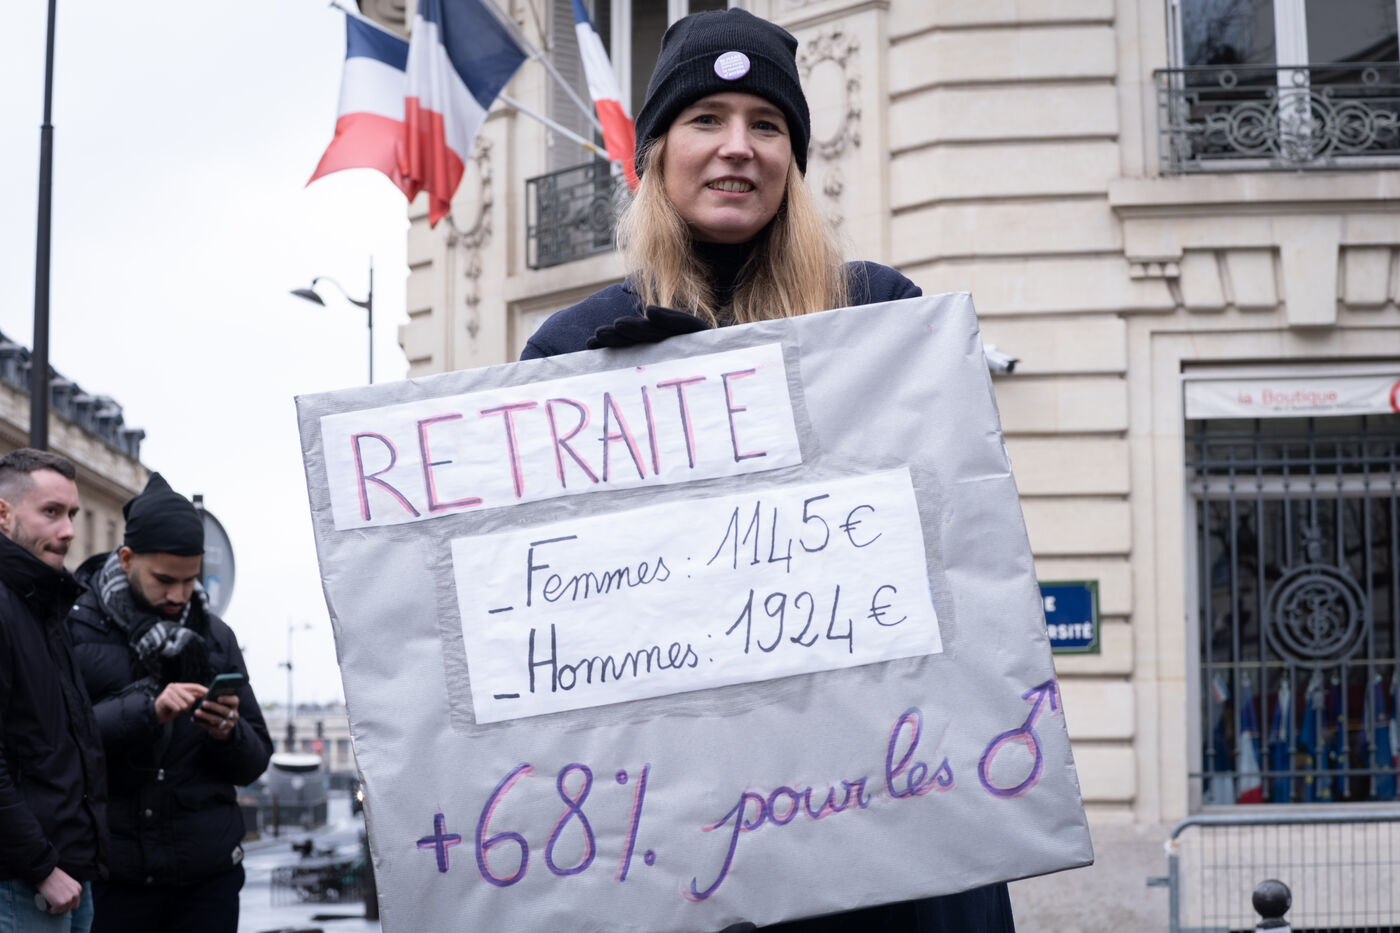 RETRAITE
- Femmes : 1145 €
- Hommes : 1924 €
+68% pour les ♂
la Boutique